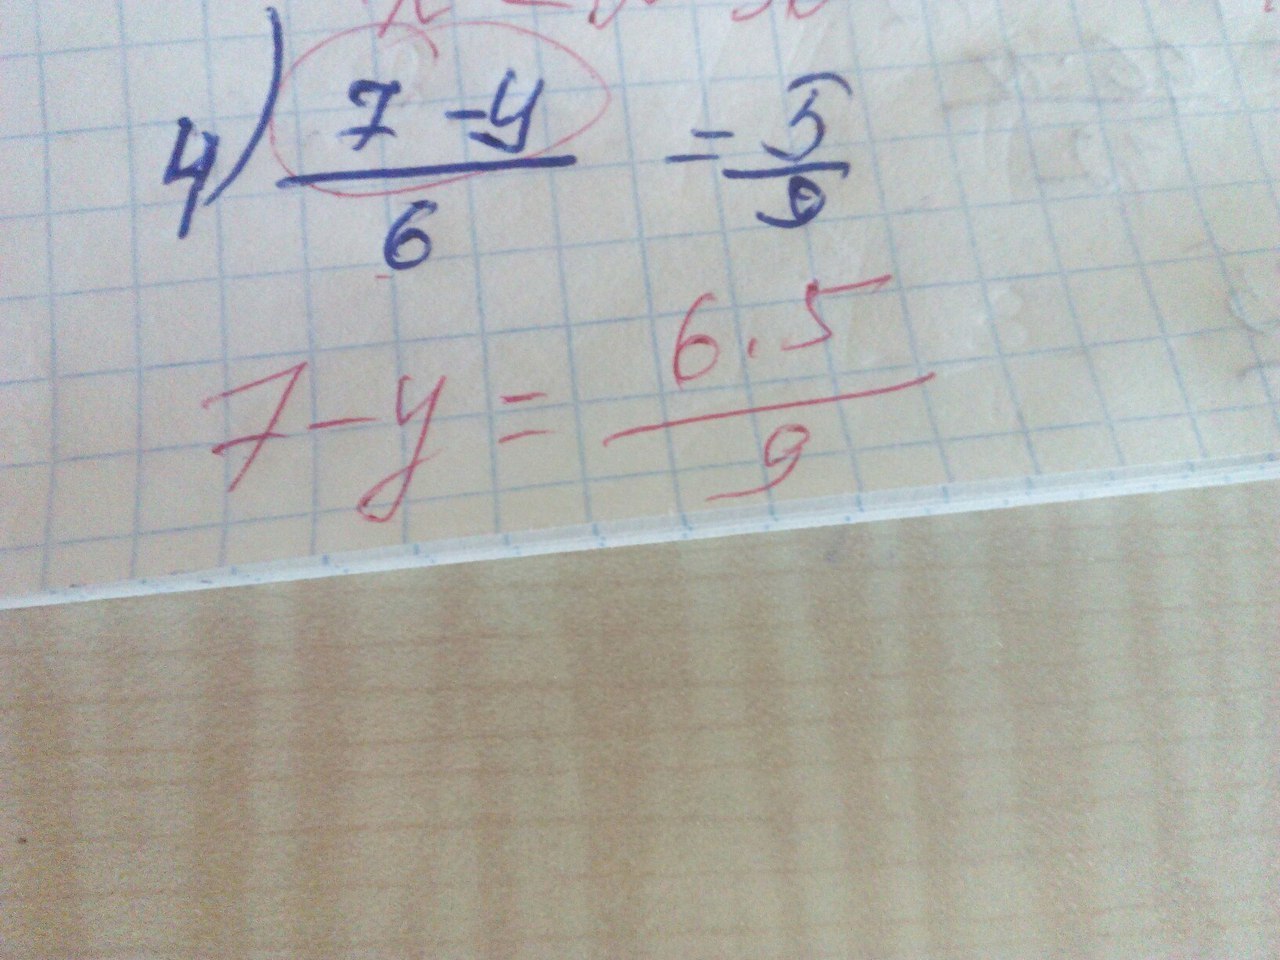 4) 7 - y / 6 = 5 / 9
7 - y = 6 . 5 / 9